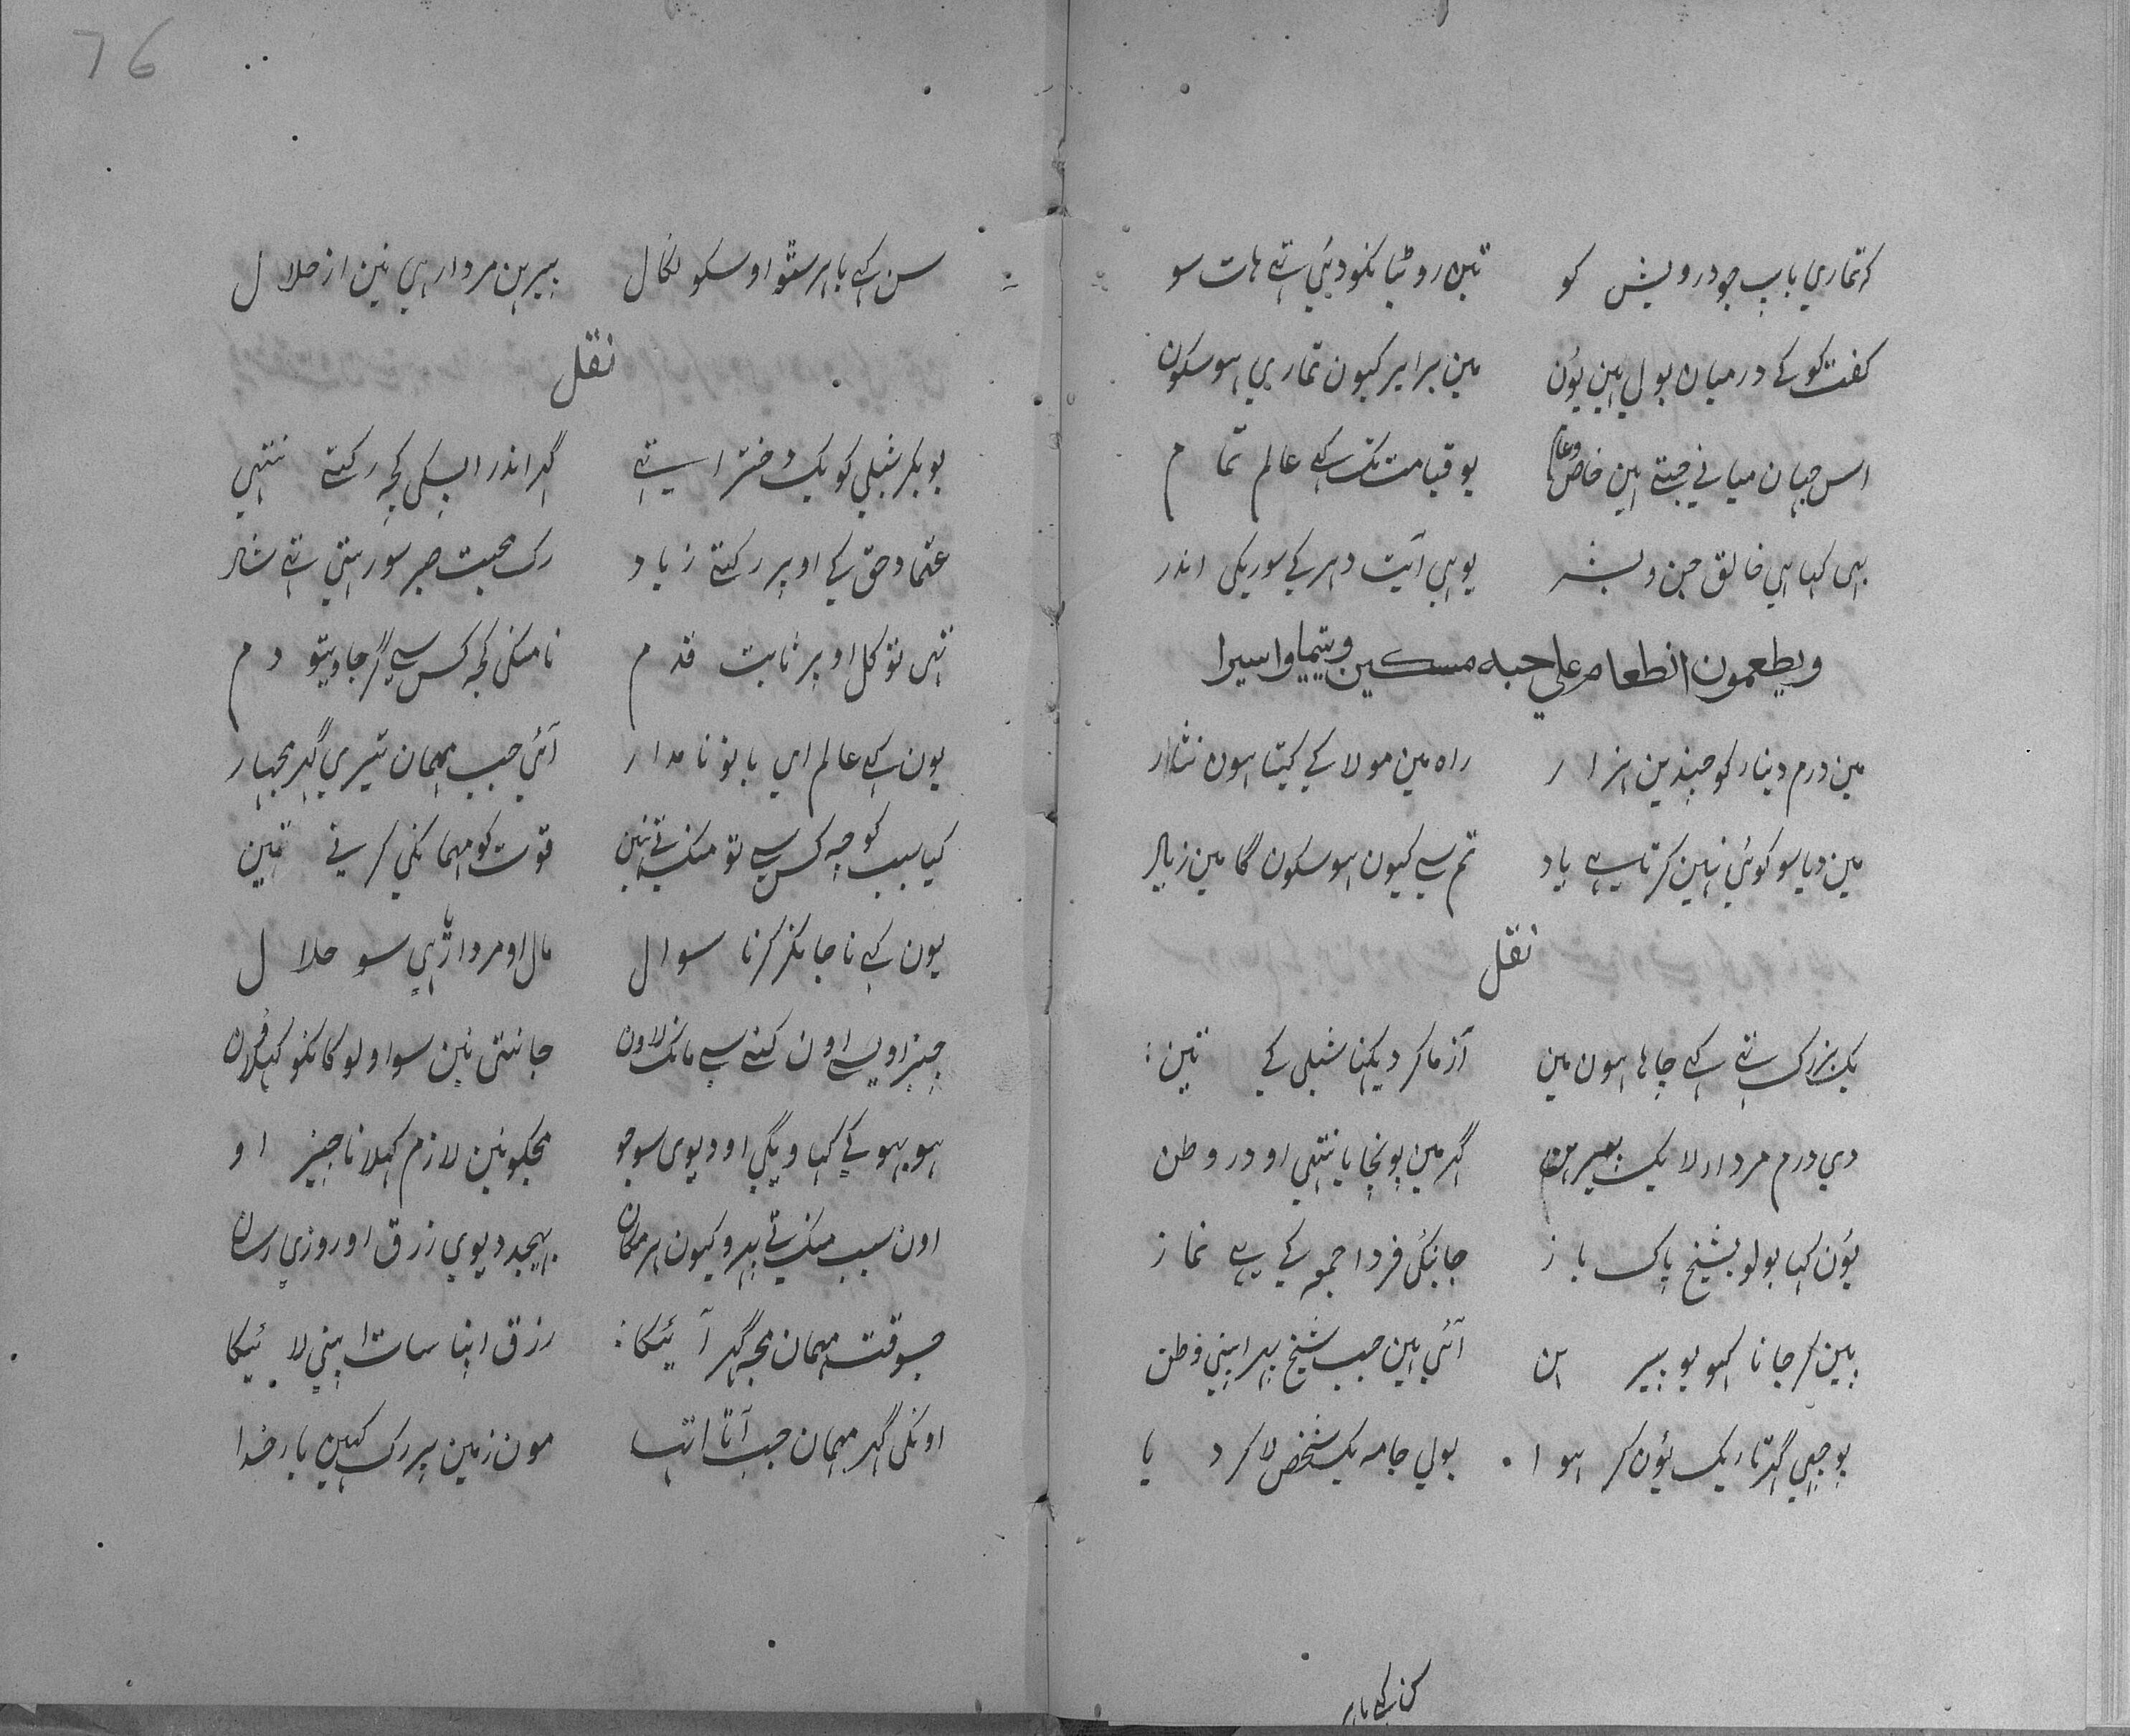 کہ تماری باپ جو درویش کو تین روٹیا نکو دیئی تہے ہات سو
کفت کو کے درمیان بول ہین یؤن مین برابر کیون تماری ہوسکون
اس جہان میانے جیتے ہین خاص وعام یو قیامت تک کہے عالم تمام
بہی کہا ہی خالق جن و بشر یو ہی آیت دہر کے سوریکی اندر
ویطعمون الطعام علی حبہ مسکین ویتیما واسیرا
مین درم دینار کو چندین ہزار راہ مین مولا کے کیتا ہون نثار
مین دیا سو کوئی نہین کرتا ہے یاد تم سے کیون ہوسکون گا مین زیاد
نقل
یک بزرک تہے کہے چاہا ہون مین آزما کر دیکہنا شبلی کے تین
دی درم مردار لا یک پیرہن گہر مین پونچا یا نتہی او در وطن
یؤن کہا بولو بشیخ پاک باز جانیکی فردا جمعہ کے ہے نماز
پین کر جانا کہو یو پیرہن آئی ہین جب شیخ پہر اپنی وطن
پوچہی گہر تاریک یؤن کر ہوا بولی جامہ یک شخص لا کر دیا
سن کہے باہر
76
سن کہے باہر سٹو اوسکو نکال پیرہن مردار ہی نین از حلال
نقل
بوبکر شبلی کو یک دختر اہتے گہر اندر اپسکی کچہ رکتے نتہی
عتماد حق کے اوپر رکتے زیاد رک محبت صبر سو رہتی تہے شاد
تہی توکل اوپر ثابت قدم نا منکی کچہ کس سے گر جاویتو دم
یون کہے عالم ای بانو نامدار آئی جب مہمان تیری گہر مجہار
کیا سبب کوچہ کس سے تو منکتے نہین قوت کو مہمانکی کرتے نہین
یون کہے نا جانکر کرنا سوال مال او مردار ہی سو حلال
چیز اویسے اون کنے سے مانک لاون جانتی نین سو او لوکانکو کہلاون
ہو بہو کے کہا ویگی او دیوی سو جو مجکو نین لازم کہلانا چیز او
اون سبب منکتے پہرو کیون ہر مکان بہیجد دیوی رزق او روزی رسان
جسوقت مہمان مجہ گہر آئیکا رزق اپنا سات اپنی لائیکا
اونکی گہر مہمان جب آتا اتہا مون زمین پر رک کہین بار خدا